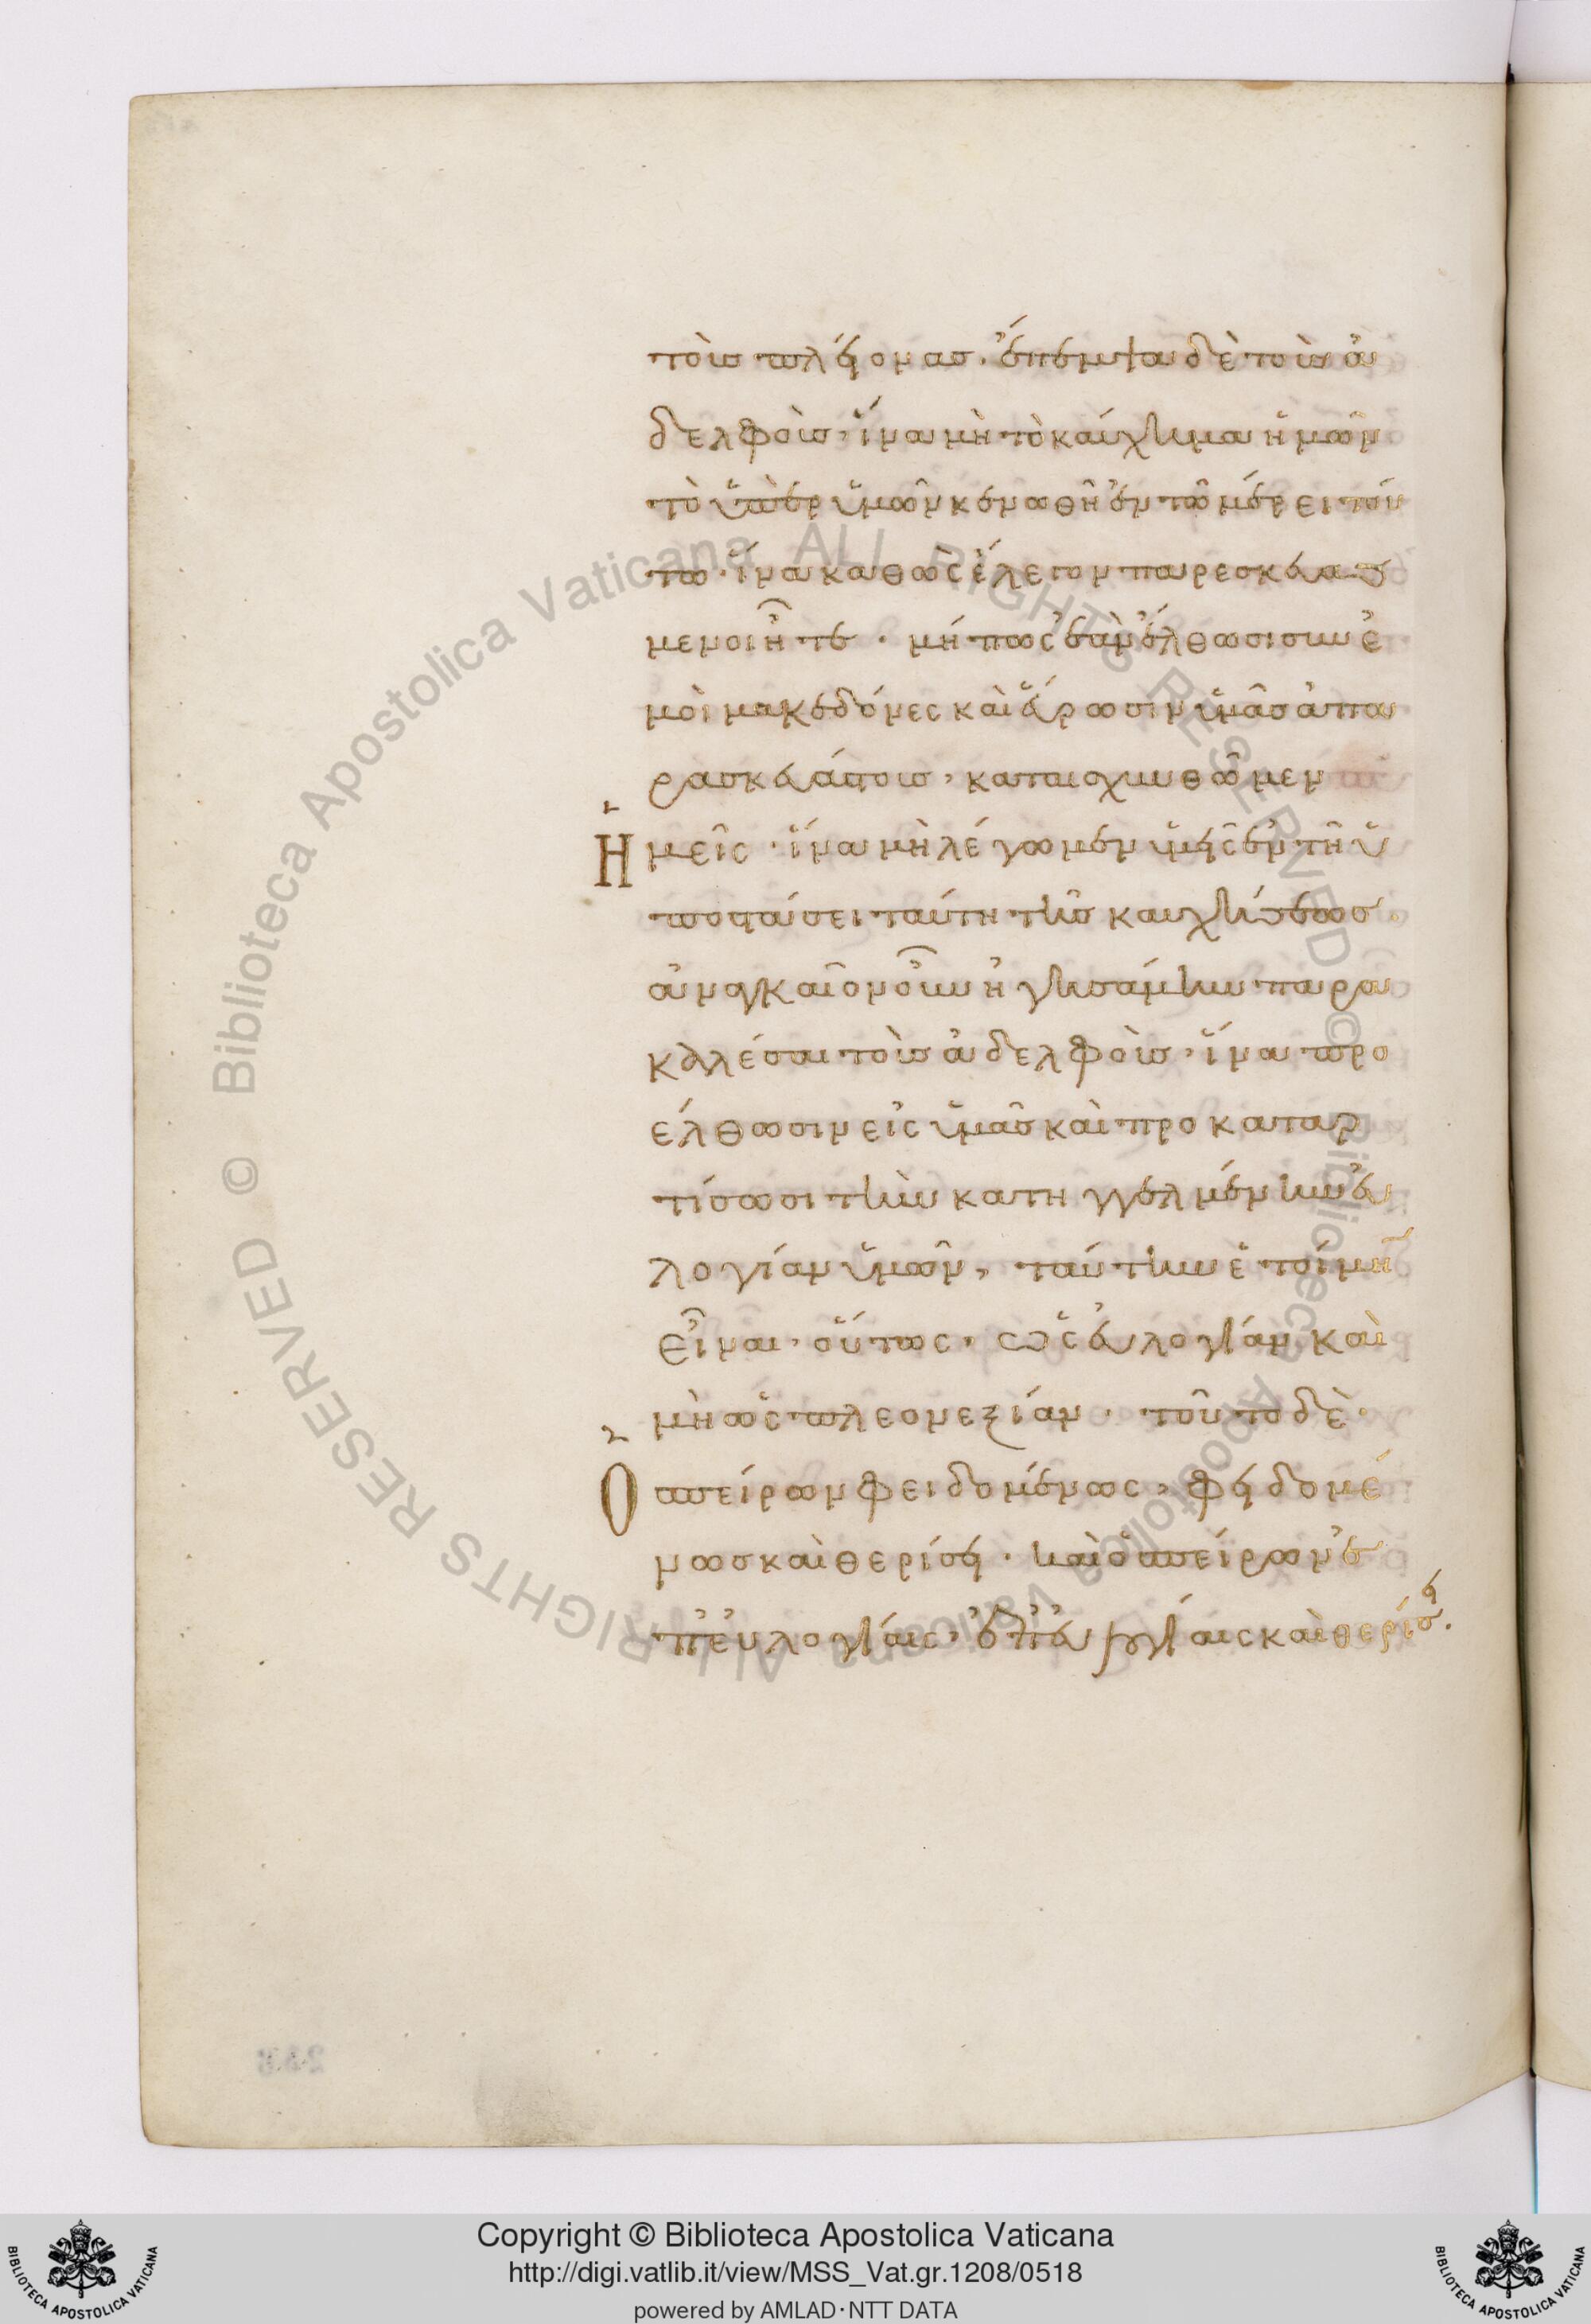 τοὺς πλείονας. ἔπεμψα δὲ τοὺς ἀ
δελφοὺς, ἵνα μὴ τὸ καύχημα ἡμῶν
τὸ ὑπὲρ ὑμῶν κενωθῆ ἐν τῶ μέρει τού
τω. ἵνα καθὼς ἔλεγον παρεσκευασ
μενοι ἦτε. μή πως ἐὰν ἔλθωσι σὺν ἐ
μοὶ μακεδόνες καὶ εὕρωσιν ὑμᾶς ἀπα
ρασκευάστους, καταισχυνθῶμεν
Ημεῖς. ἵνα μὴ λέγωμεν ὑμεῖς ἐν τῆ ὑ
ποστάσει ταύτη τῆς καυχήσεως.
ἀναγκαῖον οὖν ἡγησάμην παρα
καλέσαι τοὺς ἀδελφοὺς. ἵνα προ
έλθωσιν εἰς ὑμᾶς καὶ προκαταρ
τίσωσι τὴν κατηγγελμένην εὐ
λογίαν ὑμῶν, ταύτην ἑτοίμην
εἶναι. οὕτως, ὡς εὐλογίαν καὶ
μὴ ὡς πλεονεξίαν. τοῦτο δὲ.
Ο σπείρων φειδομένως, φειδομέ
νως καὶ θερίσει. καὶ ὁ σπείρων ἐ
π' εὐλογίαις, ἐπ' εὐλογίαις καὶ θερίσει.
Copyright © Biblioteca Apostolica Vaticana
http://digi.vatlib.it/view/MSS_Vat.gr.1208/0518
powered by AMLAD·NTT DATA
BIBLIOTECA APOSTOLICA VATICANA
BIBLIOTECA APOSTOLICA VATICANA
© Biblioteca Apostolica Vaticana ALL RIGHTS RESERVED © Biblioteca Apostolica Vaticana ALL RIGHTS RESERVED